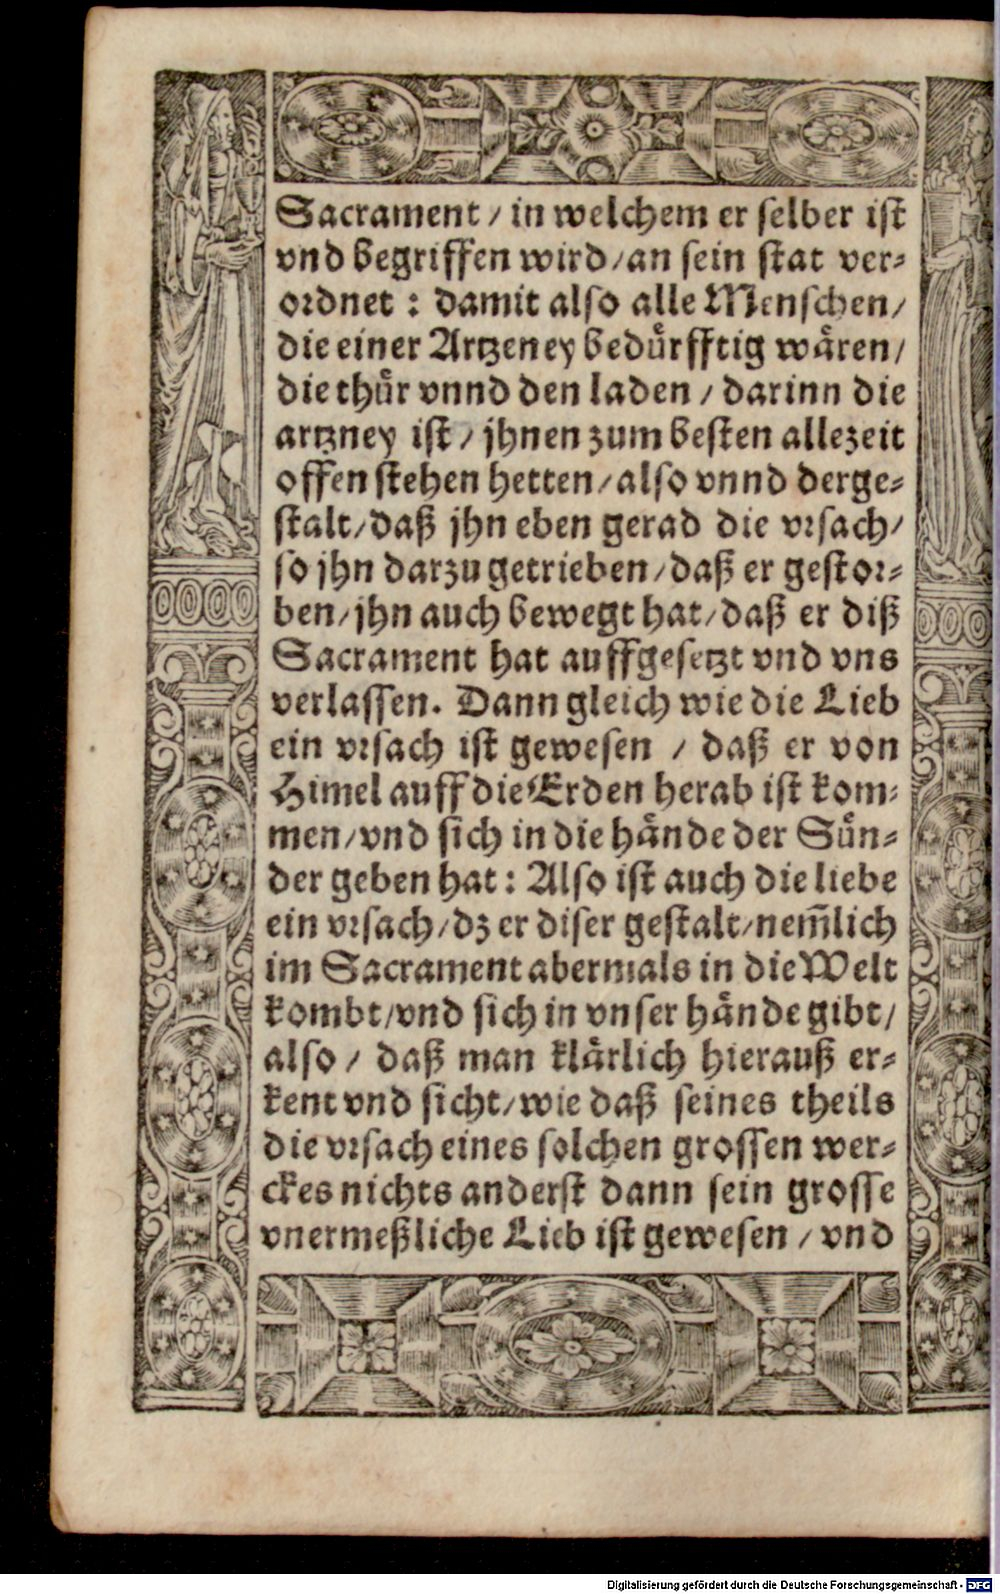 Sacrament / in welchem er selber ist
vnd begriffen wird / an sein stat ver-
ordnet : damit also alle Menschen /
die einer Artzeney bedürfftig wären /
die thür vnnd den laden / darinn die
artzney ist / jhnen zum besten allezeit
offen stehen hetten / also vnnd derge-
stalt / daß jhn eben gerad die vrsach /
so jhn darzu getrieben / daß er gestor-
ben / jhn auch bewegt hat / daß er diß
Sacrament hat auffgesetzt vnd vns
verlassen. Dann gleich wie die Lieb
ein vrsach ist gewesen / daß er von
Himel auff die Erden herab ist kom-
men / vnd sich in die hände der Sün-
der geben hat : Also ist auch die liebe
ein vrsach / dz er diser gestalt / nem̃lich
im Sacrament abermals in die Welt
kombt / vnd sich in vnser hände gibt /
also / daß man klärlich hierauß er-
kent vnd sicht / wie daß seines theils
die vrsach eines solchen grossen wer-
ckes nichts anderst dann sein grosse
vnermeßliche Lieb ist gewesen / vnd
Digitalisierung gefördert durch die Deutsche Forschungsgemeinschaft - DFG